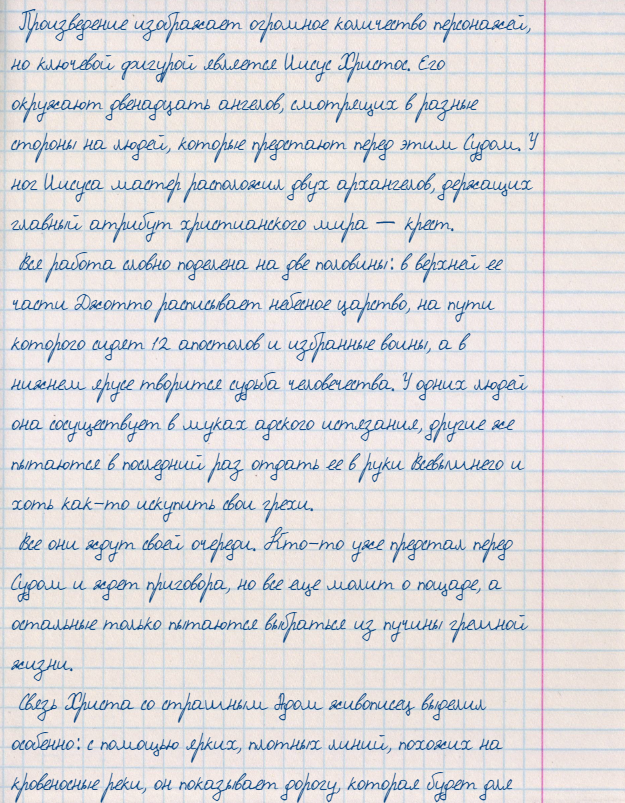 Произведение изображает огромное количество персонажей,
но ключевой фигурой является Иисус Христос. Его
окружают двенадцать ангелов, смотрящих в разные
стороны на людей, которые предстают перед этим Судом. У
ног Иисуса мастер расположил двух архангелов, держащих
главный атрибут христианского мира — крест.
Вся работа словно поделена на две половины: в верхней ее
части Джотто расписывает небесное царство, на пути
которого сидят 12 апостолов и избранные воины, а в
нижнем ярусе творится судьба человечества. У одних людей
она сосуществует в муках адского истязания, другие же
пытаются в последний раз отдать ее в руки Всевышнего и
хоть как-то искупить свои грехи.
Все они ждут своей очереди. Кто-то уже предстал перед
Судом и ждет приговора, но все еще молит о пощаде, а
остальные только пытаются выбраться из пучины грешной
жизни.
Связь Христа со страшным Адом живописец выделил
особенно: с помощью ярких, плотных линий, похожих на
кровеносные реки, он показывает дорогу, которая будет для